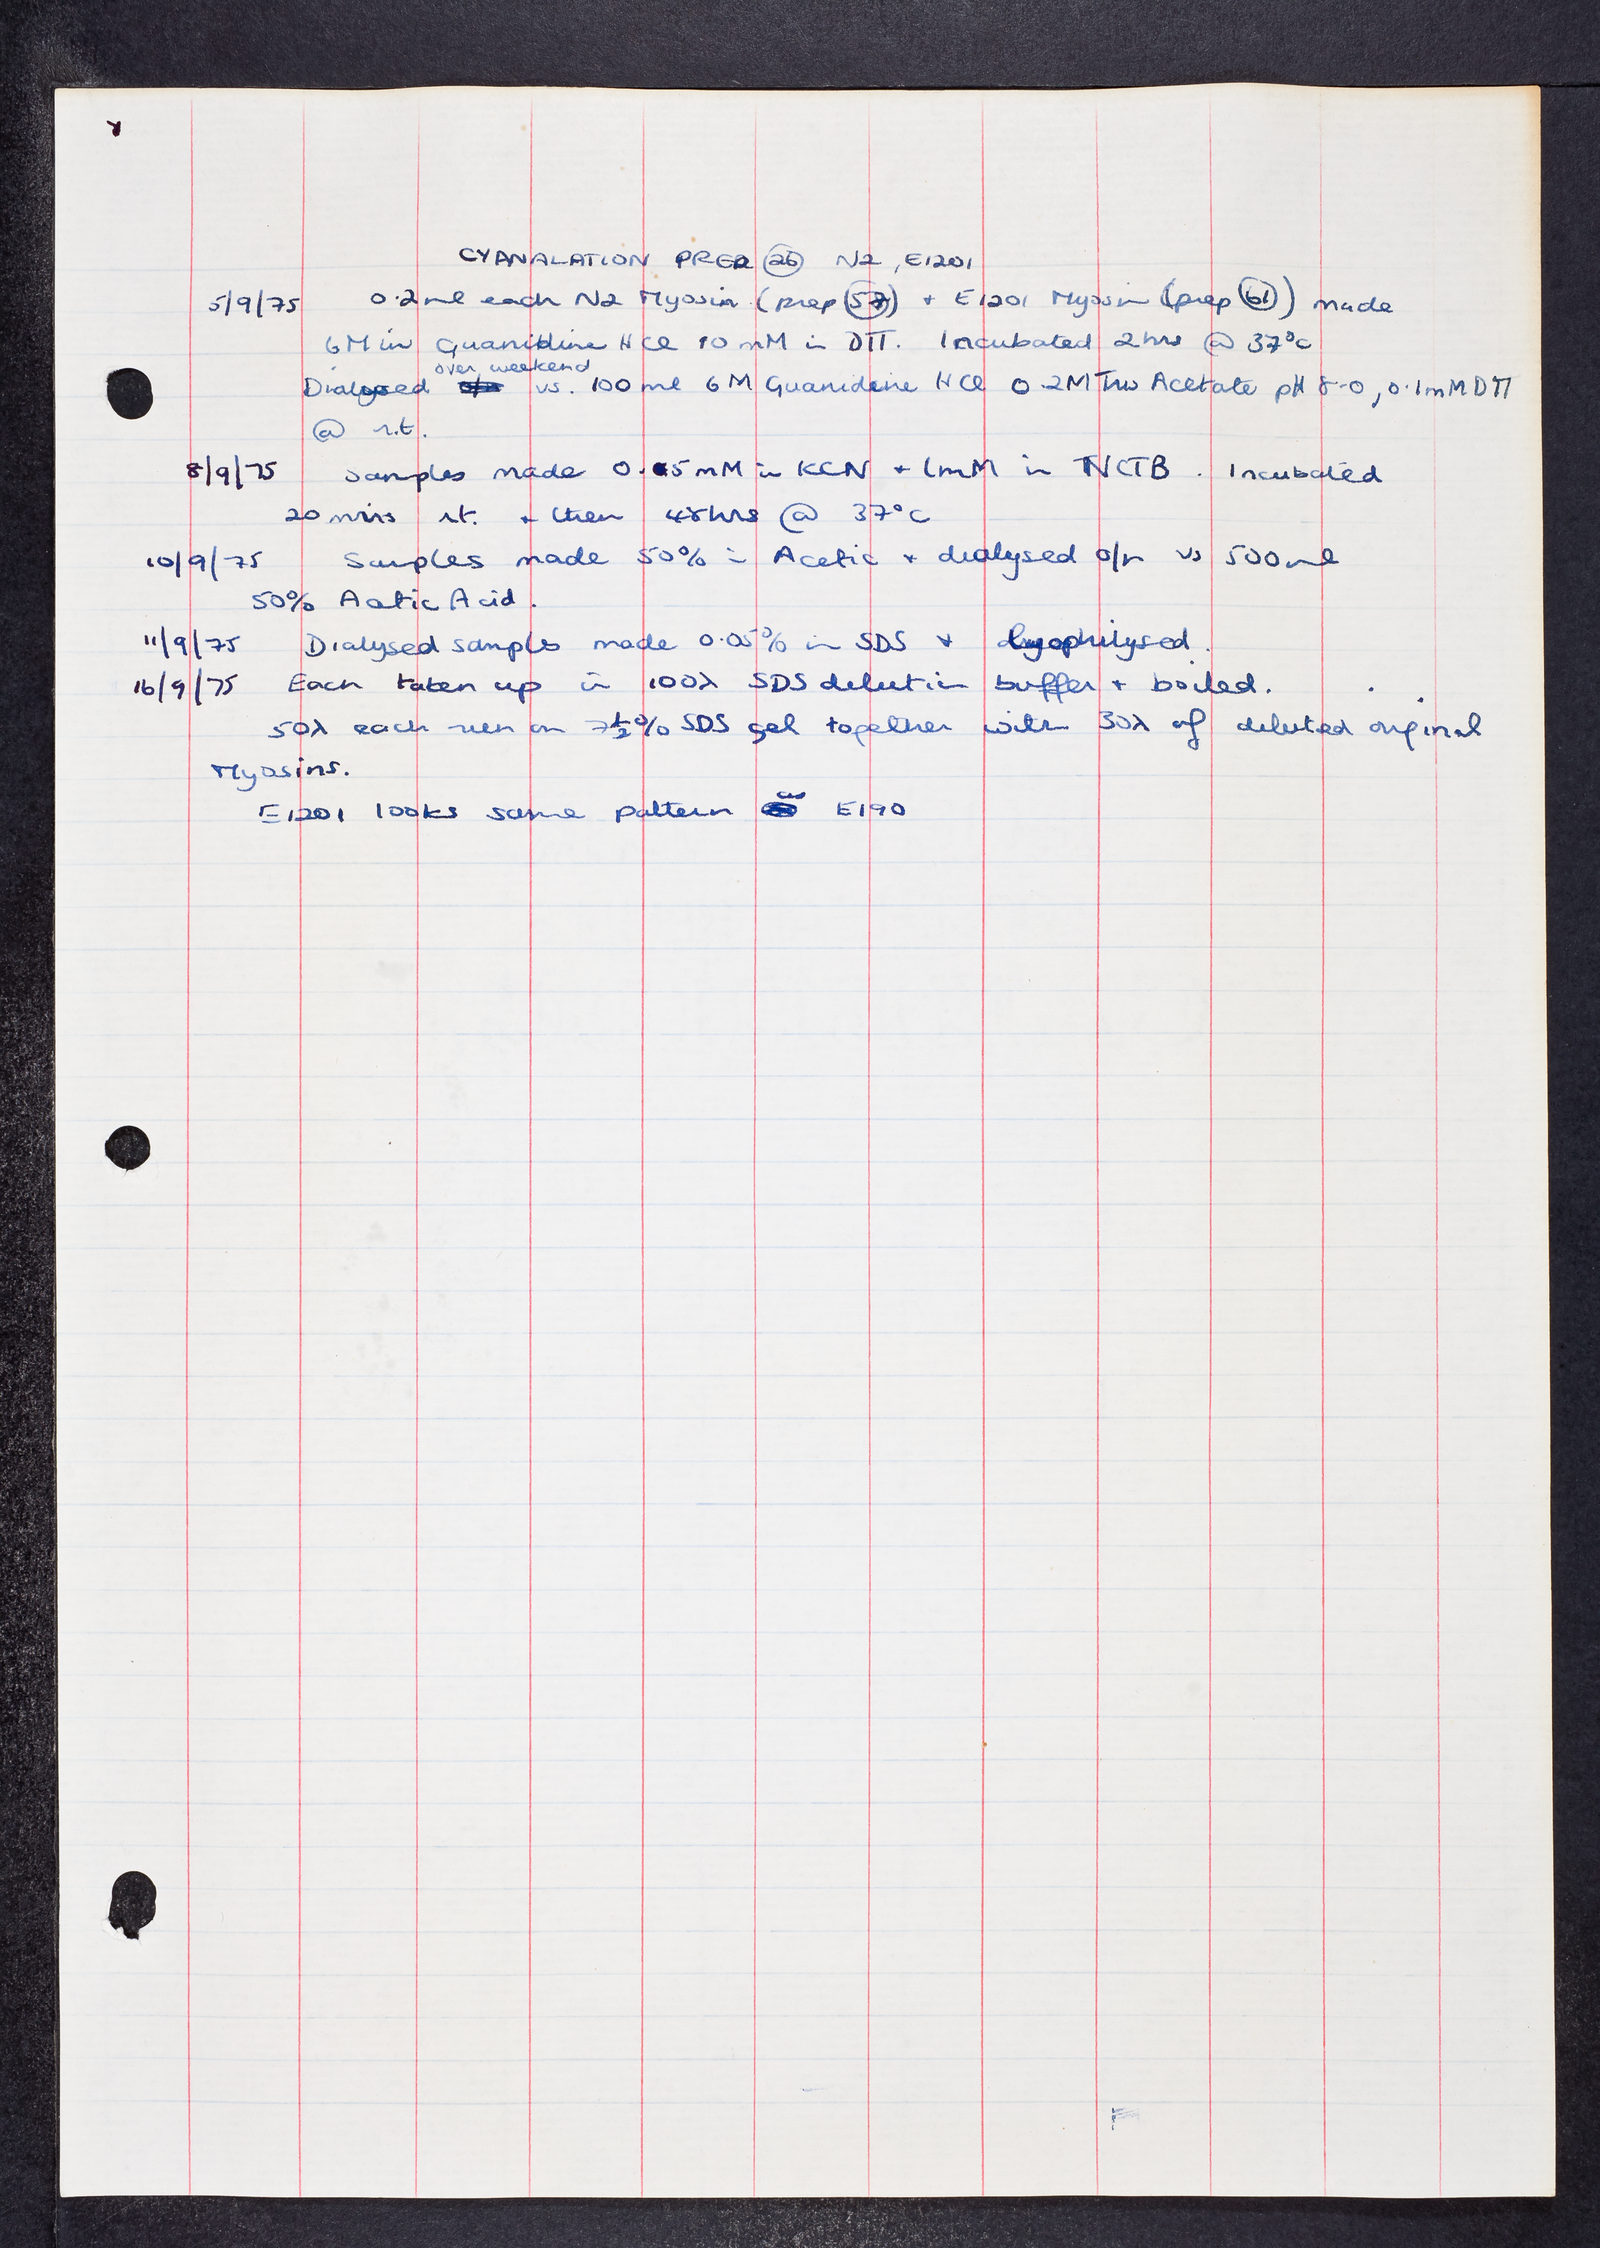 CYANALATION PREP 26 N2, E1201
5/9/75 0.2ml each N2 Myosin (prep 57) + E1201 Myosin (prep 61) made
6M in Guanidine HCl 10 mM in DTT. Incubated 2hrs @ 37°C
over weekend
Dialysed vs. 100 ml 6M Guanidine HCl 0.2M Tris Acetate pH 8.0, 0.1mM DTT
@ r.t.
8/9/75 Samples made mM in KCN + 1mM in NCTB. Incubated
20 mins r.t. + then 48hrs @ 37°C
10/9/75 Samples made 50% in Acetic + dialysed o/n vs 500ml
50% Acetic Acid.
11/9/75 Dialysed samples made 0.05% in SDS + lyophilysed.
16/9/75 Each taken up in 100λ SDS dilution buffer + boiled.
50λ each run on 7½% SDS gel together with 30λ of diluted original
Myosins.
E1201 looks same pattern as E190